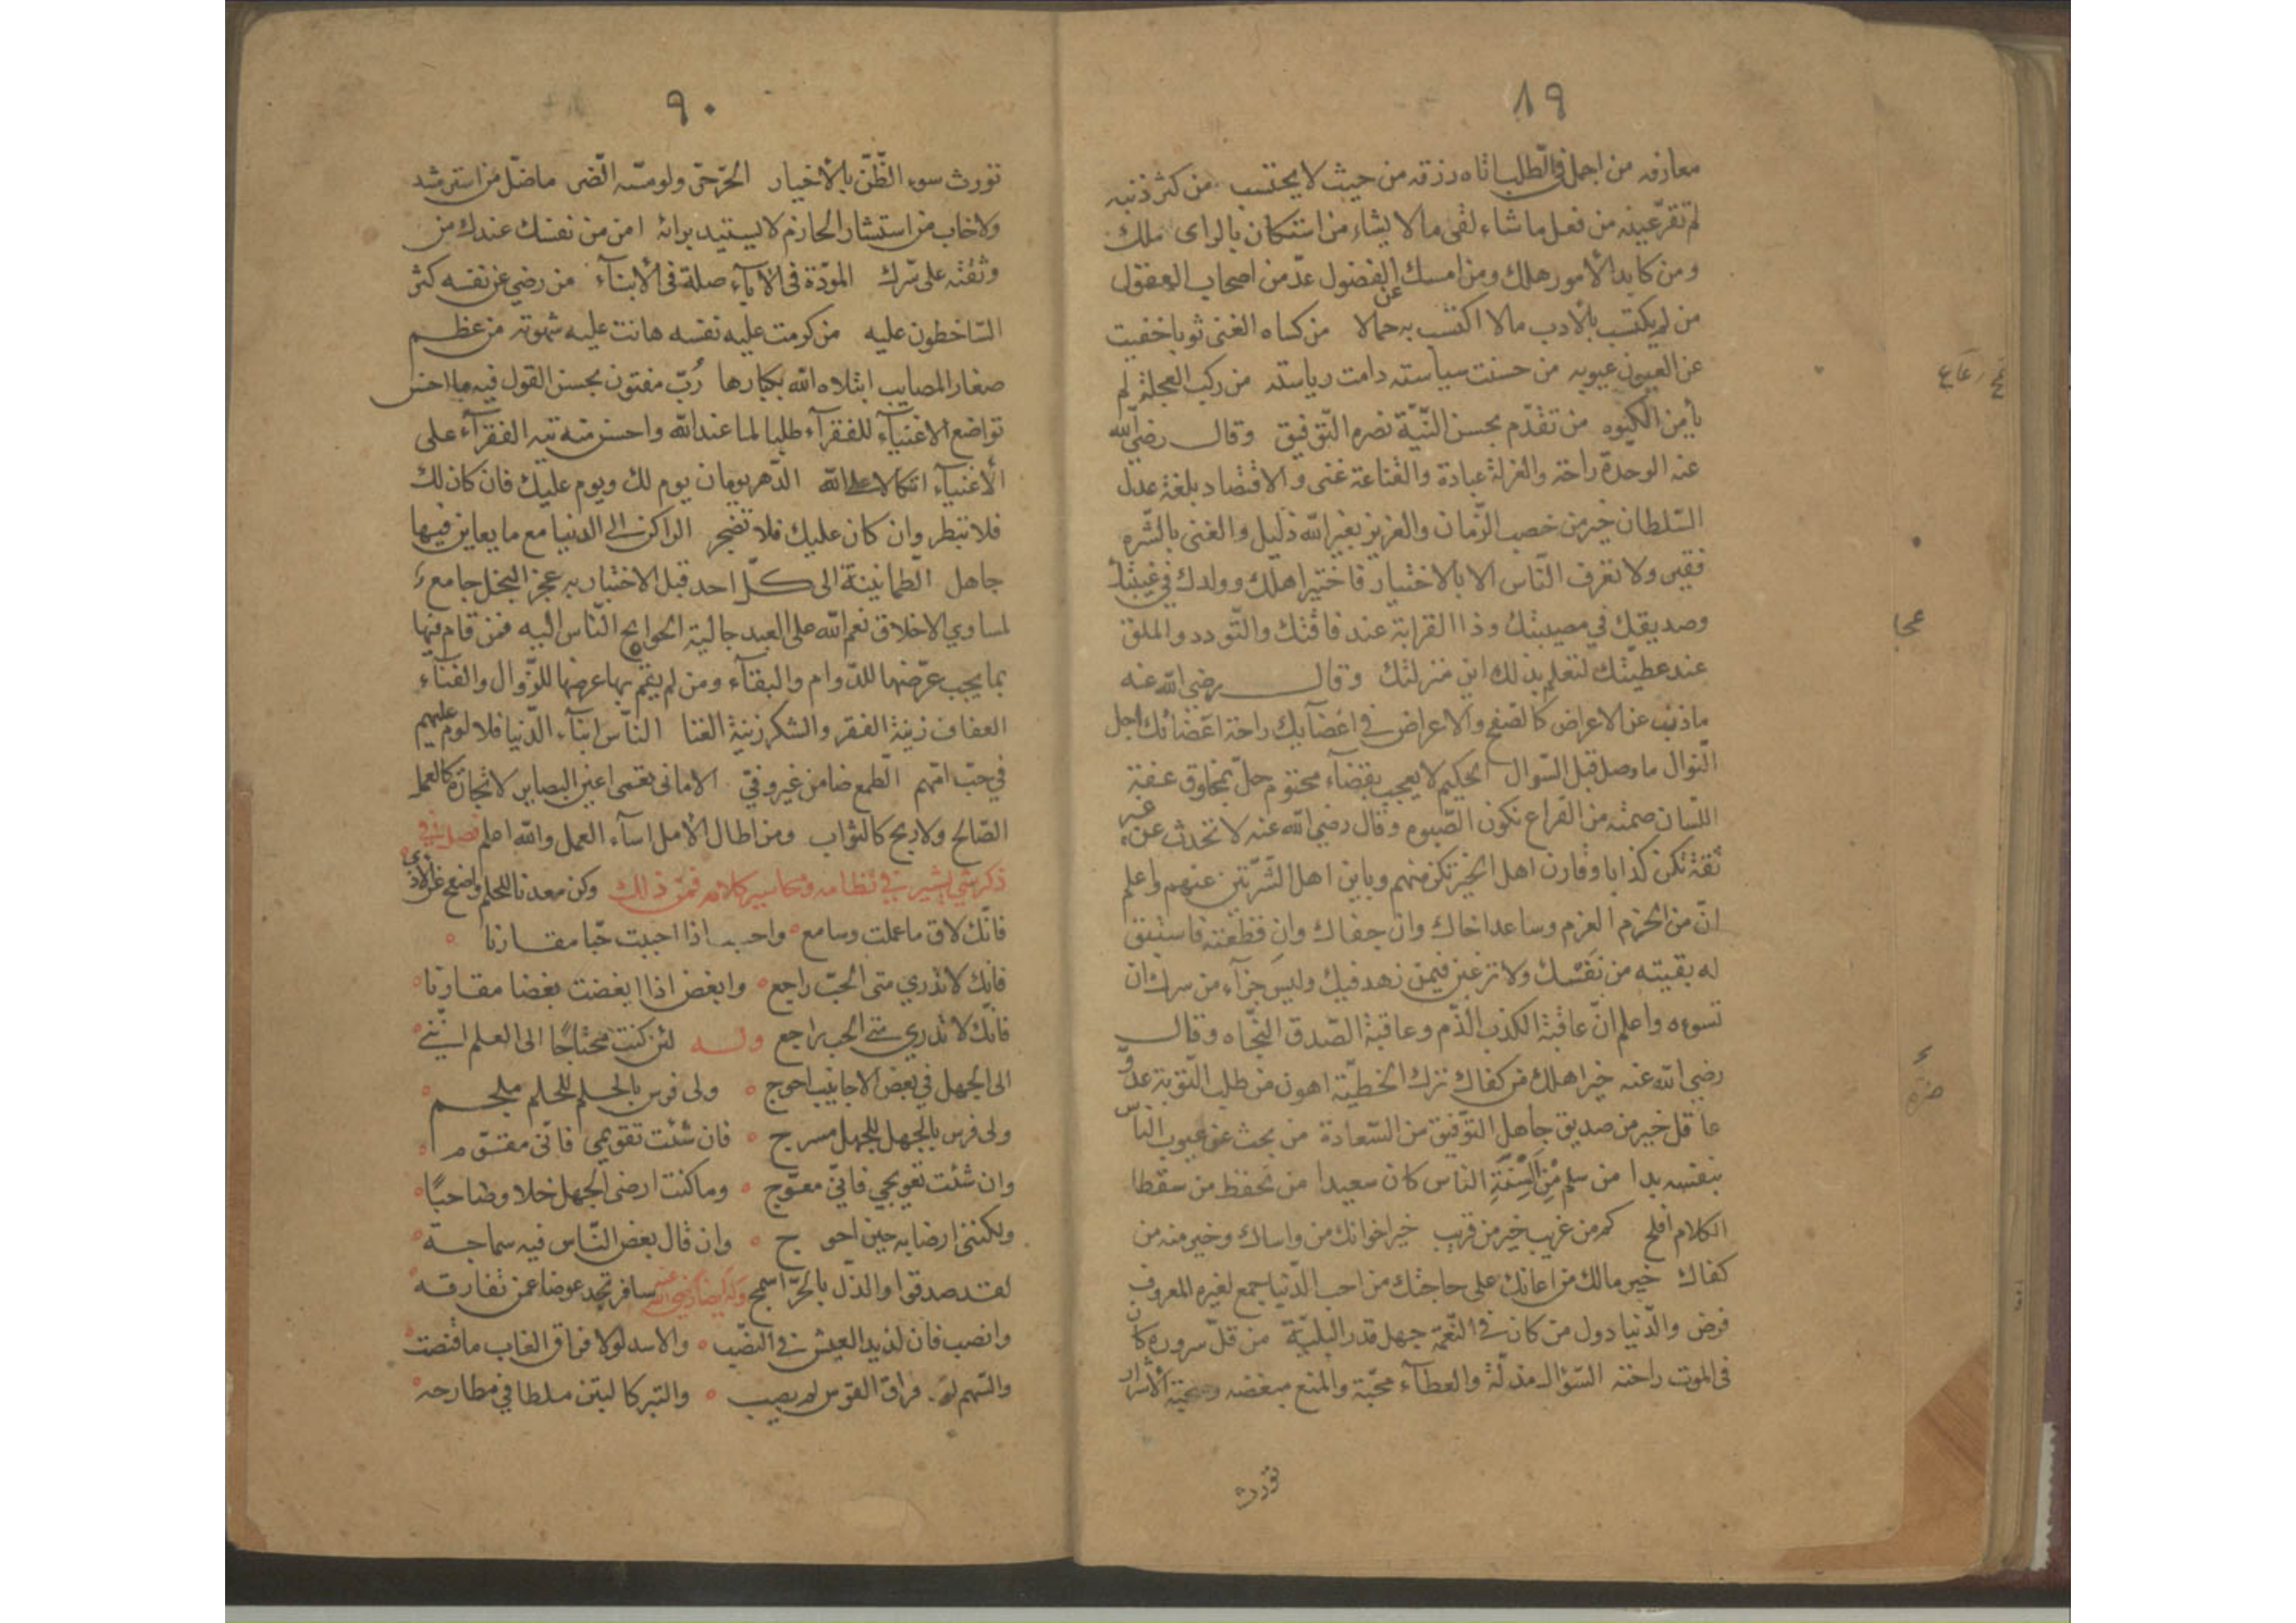 ٨٩
معارفه من اجمل في الطلب اتاه رزقه من حيث لا يحتسب من كثر ذنبه
لم تقرّ عينه من فعل ما شاء لقى ما لا يشاء من استكان بالراى ملك
ومن كابد الأمور هلك ومن امسك عن الفضول عدّ من اصحاب العقول
من لم يكتسب بالأدب مالا اكتسب به جمالا من كساه الغنى ثوبا خفيت
عن العيون عيوبه من حسنت سياسته دامت رياسته من ركب العجلة لم
يأمن الكبوه من تقدّم بحسن النّيّة نصره التّوفيق وقال رضي الله
عنه الوحدة راحة والعزلة عبادة والقناعة غنى والاقتصاد بلغة عدل
السّلطان خير من خصب الزّمان والعزيز بغير الله ذليل والغنى بالشّره
فقير ولا تعرف النّاس الا بالاختبار فاختبر اهلك وولدك في غيبتك
وصديقك في مصيبتك وذا القرابة عند فاقتك والتّودد والملق
عند عطيّتك لتعلم بذلك اين منزلتك وقال رضي الله عنه
ماذب عن الاعراض كالصّفح والاعراض في اعضآيك راحة اعضائك اجل
النّوال ما وصل قبل السّوال الحكيم لا يعجب بقضآء محتوم حلّ بمخلوق عفة
اللّسان صمته من القراع تكون الصّبوم وقال رضي الله عنه لا تحدث عن غير
ثقة تكن كذابا وقارن اهل الخير تكن منهم وباين اهل الشّرّ تبن عنهم واعلم
انّ من الحزم العزم وساعد اخاك وان جفاك وان قطعته فاستبق
له بقيته من نفسك ولا ترغبن فيمن زهد فيك وليس جزآء من سرك ان
تسوءه واعلم انّ عاقبة الكذب الذّم وعاقبة الصّدق النّجاه وقال
رضي الله عنه خير اهلك من كفاك ترك الخطيّة اهون من طلب التّوبة عدوّ
عاقل خير من صديق جاهل التّوفيق من السّعادة من بحث عن عيوب النّاس
بنفسه بدا من سلم مِنْ اَلْسِنَةِ الناس كان سعيدا من تحفظ من سقطا
الكلام افلح كم من غريب خير من قريب خير اخوانك من واساك وخير منه من
كفاك خير مالك من اعانك على حاجتك من احب الدّنيا جمع لغيره المعروف
فرض والدّنيا دول من كان في النّعمة جهل قدر البليّة من قلّ سروره كان
في الموت راحته السّؤال مذلّة والعطآء محبّة والمنع مبغضه وصحبة الأشرار
تورث
٩٠
تورث سوء الظّنّ بالأخيار الحرّ حرّ ولو مسّه الضّر ما ضلّ من استرشد
ولا خاب من استشار الحازم لا يستبد برائه امن من نفسك عندك من
وثقته على سرّك المودّة في الآبآء صلة في الأبنآء من رضي عن نفسه كثر
السّاخطون عليه من كرمت عليه نفسه هانت عليه شهوته من عظم
صغار المصايب ابتلاه الله بكبارها رُبّ مفتون بحسن القول فيه ما احسن
تواضع الاغنيآء للفقرآء طلبا لما عند الله واحسن منه تيه الفقرآء على
الأغنيآء اتكالا على الله الدّهر يومان يوم لك ويوم عليك فان كان لك
فلا تبطر وان كان عليك فلا تضجر الراكن الى الدنيا مع ما يعاين فيها
جاهل الطّمانينة الى كلّ احد قبل الاختبار به عجز البخل جامع
لمساوي الاخلاق نعم الله على العبد جالبة الحوايج النّاس اليه فمن قام فيها
بما يجب عرّضها للدّوام والبقآء ومن لم يقم بها عرضها للزّوال والفنآء
العفاف زينة الفقر والشكر زينة الغنا النّاس ابنآء الدّنيا فلا لوم عليهم
في حبّ امّهم الطّمع ضامن غير وفيّ الاماني تعمى اعين البصاير لا تجارة كالعمل
الصّالح ولا ربح كالثواب ومن اطال الأمل اسآء العمل والله اعلم فصل في
ذكر شئ يسير في نظامه ومحاسن كلامه فمن ذالك وكن معدنا للحلم واصفح عن الأذى
فانّك لاق ما عملت وسامع واحبب اذا احببت حبّا مقاربا
فانّك لا تدري متى الحبّ راجع وابغض اذا ابغضت بغضا مقاربا
فانّك لا تدري متى الحب راجع وله لئن كنت محتاجًا الى العلم انّني
الى الجهل في بعض الاحايين احوج ولى فرس بالحلم للحلم ملجم
ولى فرس بالجهل للجهل مسرج فان شئت تقويمي فانّى مقوّم
وان شئت تعويجي فانّي معوّج وما كنت ارضى الجهل خلا وصاحبًا
ولكننى ارضا به حين احوج وان قال بعض النّاس فيه سماجة
لقد صدقوا والذّل بالحرّ اسمج وله ايضا رضي الله عنه سافر تجد عوضا عمن تفارقه
وانصب فان لذيذ العيش في النصّب والاسد لولا فراق الغاب ما قنصت
والسّهم لولا فراق القوس لم يصب والتبر كالتبن ملطا في مطارحه